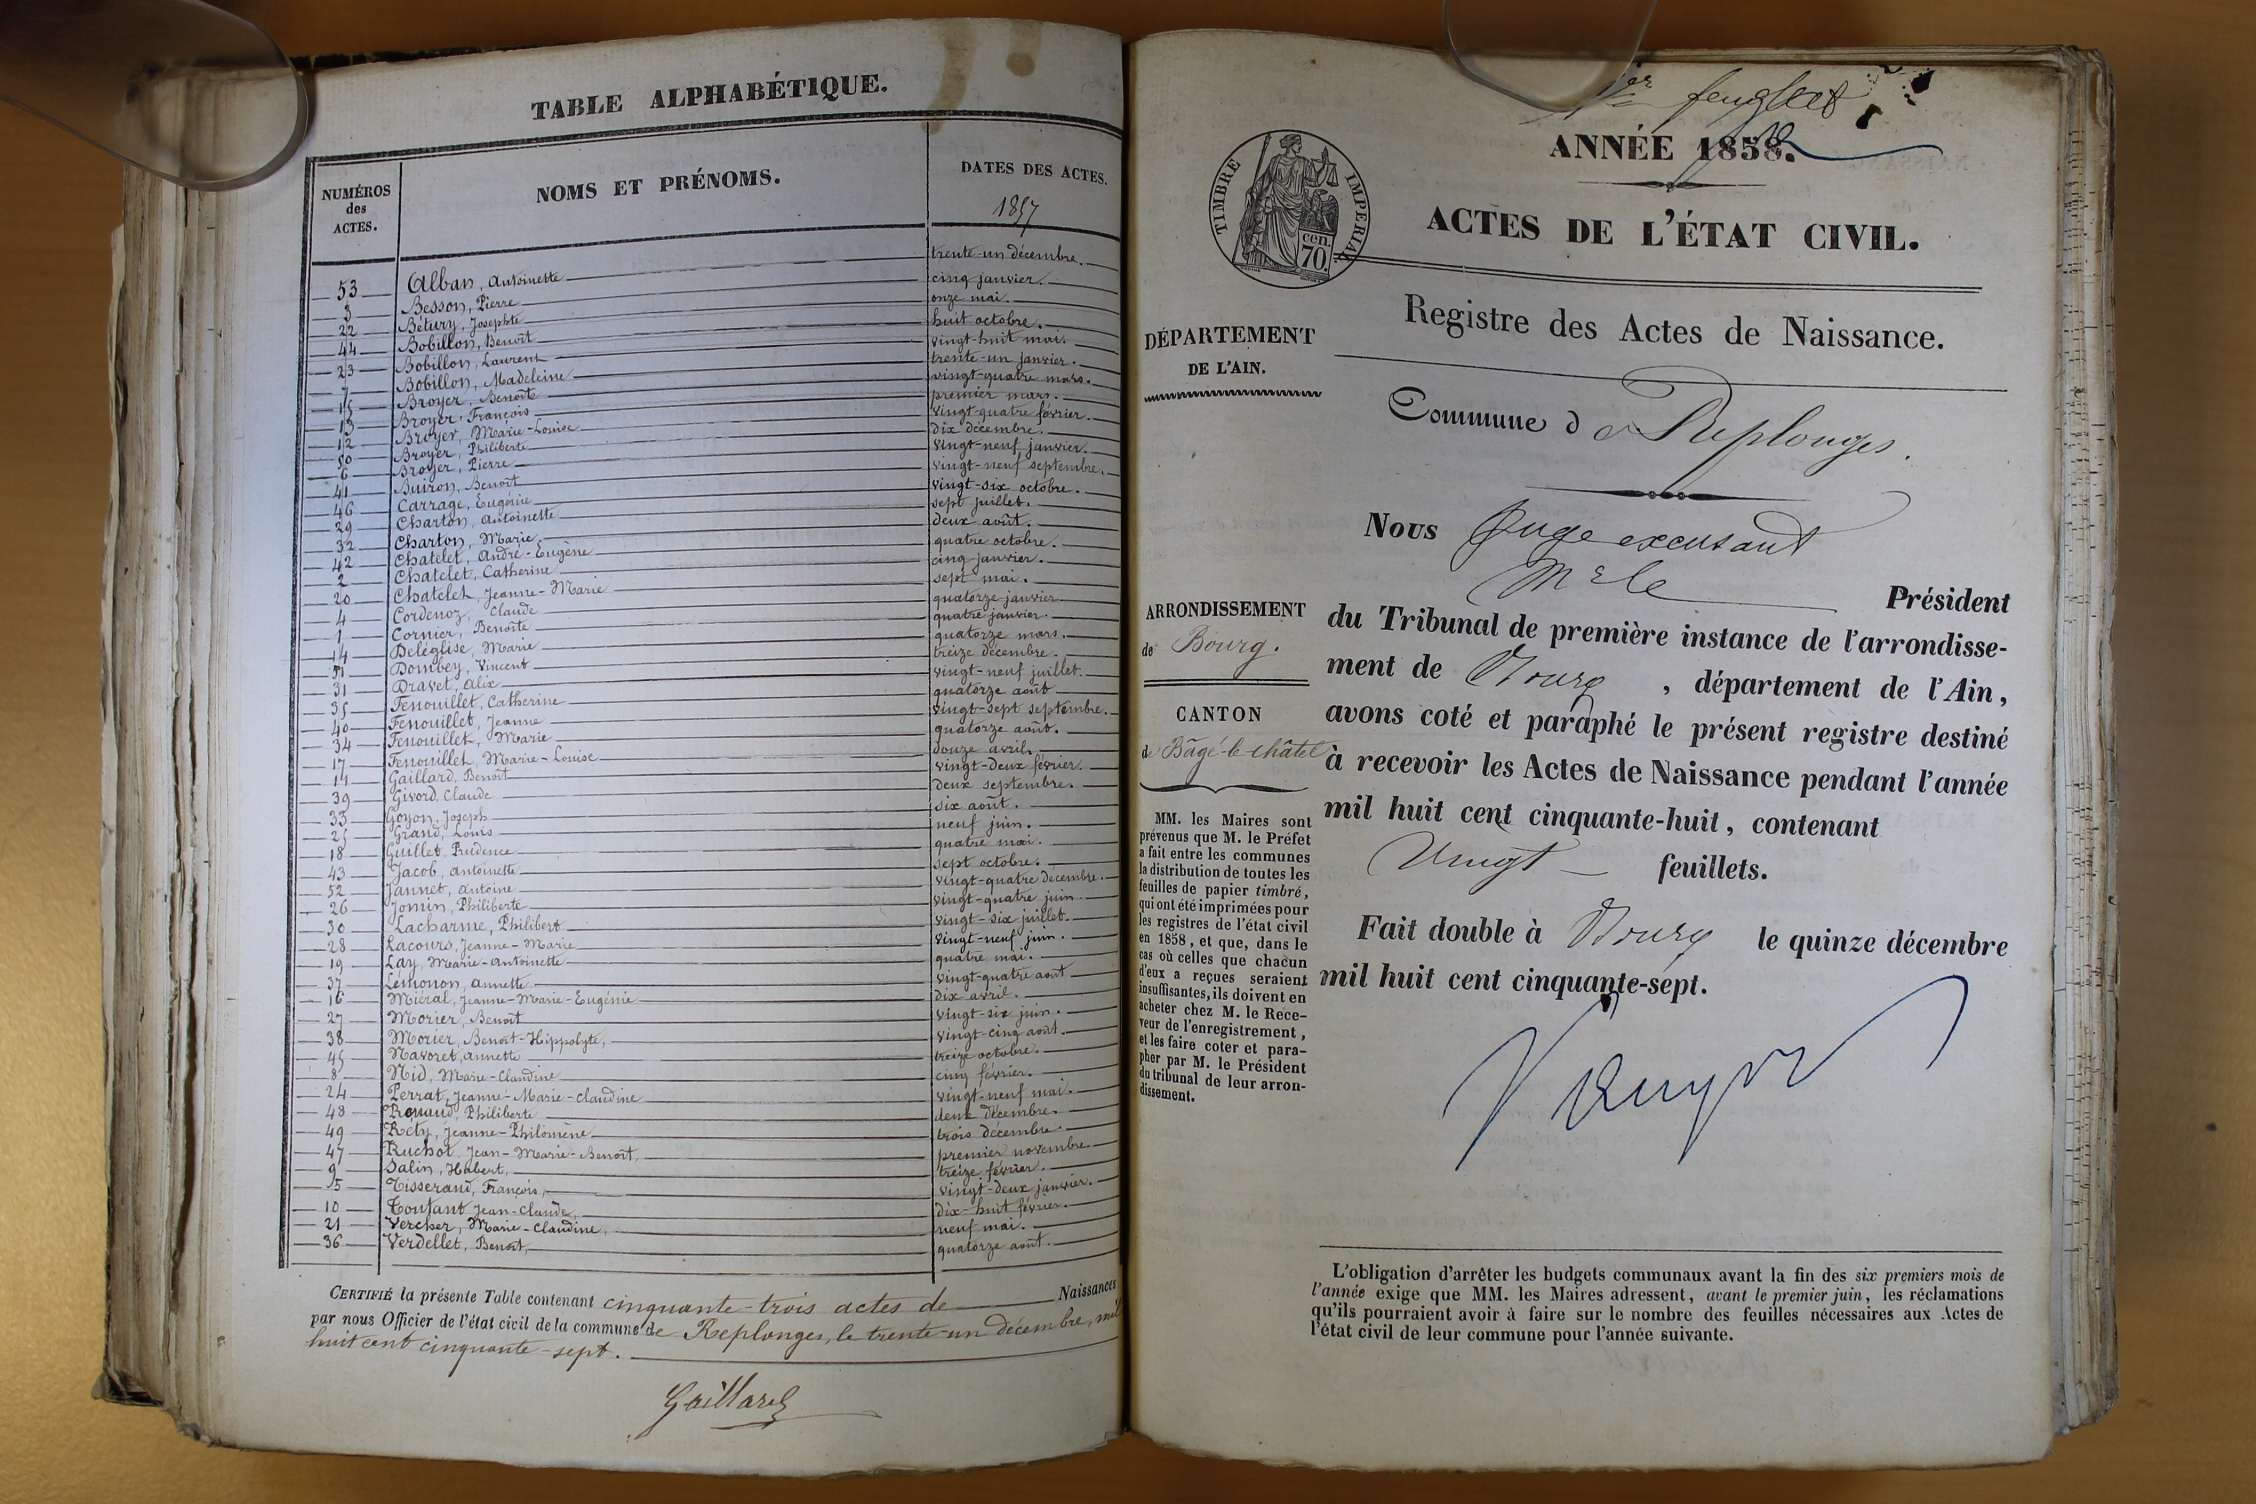 TABLE ALPHABÉTIQUE.
NUMÉROS
des
ACTES.
NOMS ET PRÉNOMS.
DATES DES ACTES.
1857
53 Alban, Antoinette trente-un décembre.
3 Besson, Pierre cinq janvier.
22 Bétury, Josephte onze mai.
44 Bobillon, Benoît huit octobre.
23 Bobillon, Laurent vingt-huit mai.
7 Bobillon, Madeleine trente-un janvier.
15 Broyer, Benoîte vingt-quatre mars.
13 Broyer, François premier mars.
12 Broyer, Marie-Louise vingt-quatre février.
50 Broyer, Philiberte dix décembre.
6 Broyer, Pierre vingt-neuf janvier.
41 Buiron, Benoît vingt-neuf septembre.
46 Carrage, Eugénie vingt-six octobre.
29 Charton, Antoinette sept juillet.
32 Charton, Marie deux août.
42 Chatelet, André-Eugène quatre octobre.
2 Chatelet, Catherine cinq janvier.
20 Chatelet, Jeanne-Marie sept mai.
4 Cordenoz, Claude quatorze janvier
1 Cornier, Benoîte quatre janvier.
14 Deléglise, Marie quatorze mars.
51 Dombey, Vincent treize décembre.
31 Dravet, Alix vingt-neuf juillet.
35 Fenouillet, Catherine quatorze août
40 Fenouillet, Jeanne vingt-sept septembre.
34 Fenouillet, Marie quatorze août.
17 Fenouillet, Marie-Louise douze avril.
11 Gaillard, Benoît vingt-deux février.
39 Givord, Claude deux septembre.
33 Goyon, Joseph six août.
25 Grand, Louis neuf juin.
18 Guillet, Prudence quatre mai.
43 Jacob, Antoinette sept octobre.
52 Jannet, Antoine vingt-quatre decembre.
26 Jomin, Philiberte vingt-quatre juin
30 Lacharme, Philibert vingt-six juillet.
28 Lacours, Jeanne-Marie vingt-neuf juin.
19 Lay, Marie-Antoinette quatre mai.
37 Lémonon, Annette vingt-quatre août
16 Miéral, Jeanne-Marie-Eugénie dix avril.
27 Morier, Benoît vingt-six juin.
38 Morier, Benoît-Hippolyte, vingt-cinq août.
45 Navoret, Annette treize octobre.
8 Nid, Marie-Claudine cinq février.
24 Perrat, Jeanne-Marie-Claudine vingt-neuf mai.
48 Renaud, Philiberte deux décembre.
49 Réty, Jeanne-Philomène trois décembre.
47 Ruchot, Jean-Marie-Benoît, premier novembre.
9 Salin, Hubert, treize février.
5 Tisserand, François, vingt-deux janvier.
10 Toutant, Jean-Claude, dix-huit février.
21 Vercher, Marie-Claudine, neuf mai.
36 Verdellet, Benoît, quatorze août.
CERTIFIÉ la présente Table contenant cinquante-trois actes de Naissances
par nous Officier de l'état civil de la commune de Replonges, le trente-un décembre, mil
huit cent cinquante-sept.
Gaillard
1er feuillet
ANNÉE 1858.
TIMBRE IMPERIAL
cen.
70.
ACTES DE L'ÉTAT CIVIL.
Registre des Actes de Naissance.
DÉPARTEMENT
DE L'AIN.
Commune de Replonges.
Nous Juge excusant
Mr le Président
du Tribunal de première instance de l'arrondisse-
ment de Bourg, département de l'Ain,
avons coté et paraphé le présent registre destiné
à recevoir les Actes de Naissance pendant l'année
mil huit cent cinquante-huit, contenant
Vingt feuillets.
Fait double à Bourg le quinze décembre
mil huit cent cinquante-sept.
ARRONDISSEMENT
de Bourg.
CANTON
de Bâgé-le-châtel
MM. les Maires sont
prévenus que M. le Préfet
a fait entre les communes
la distribution de toutes les
feuilles de papier timbré,
qui ont été imprimées pour
les registres de l'état civil
en 1858, et que, dans le
cas où celles que chacun
d'eux a reçues seraient
insuffisantes, ils doivent en
acheter chez M. le Rece-
veur de l'enregistrement,
et les faire coter et para-
pher par M. le Président
du tribunal de leur arron-
dissement.
L'obligation d'arrêter les budgets communaux avant la fin des six premiers mois de
l'année exige que MM. les Maires adressent, avant le premier juin, les réclamations
qu'ils pourraient avoir à faire sur le nombre des feuilles nécessaires aux Actes de
l'état civil de leur commune pour l'année suivante.